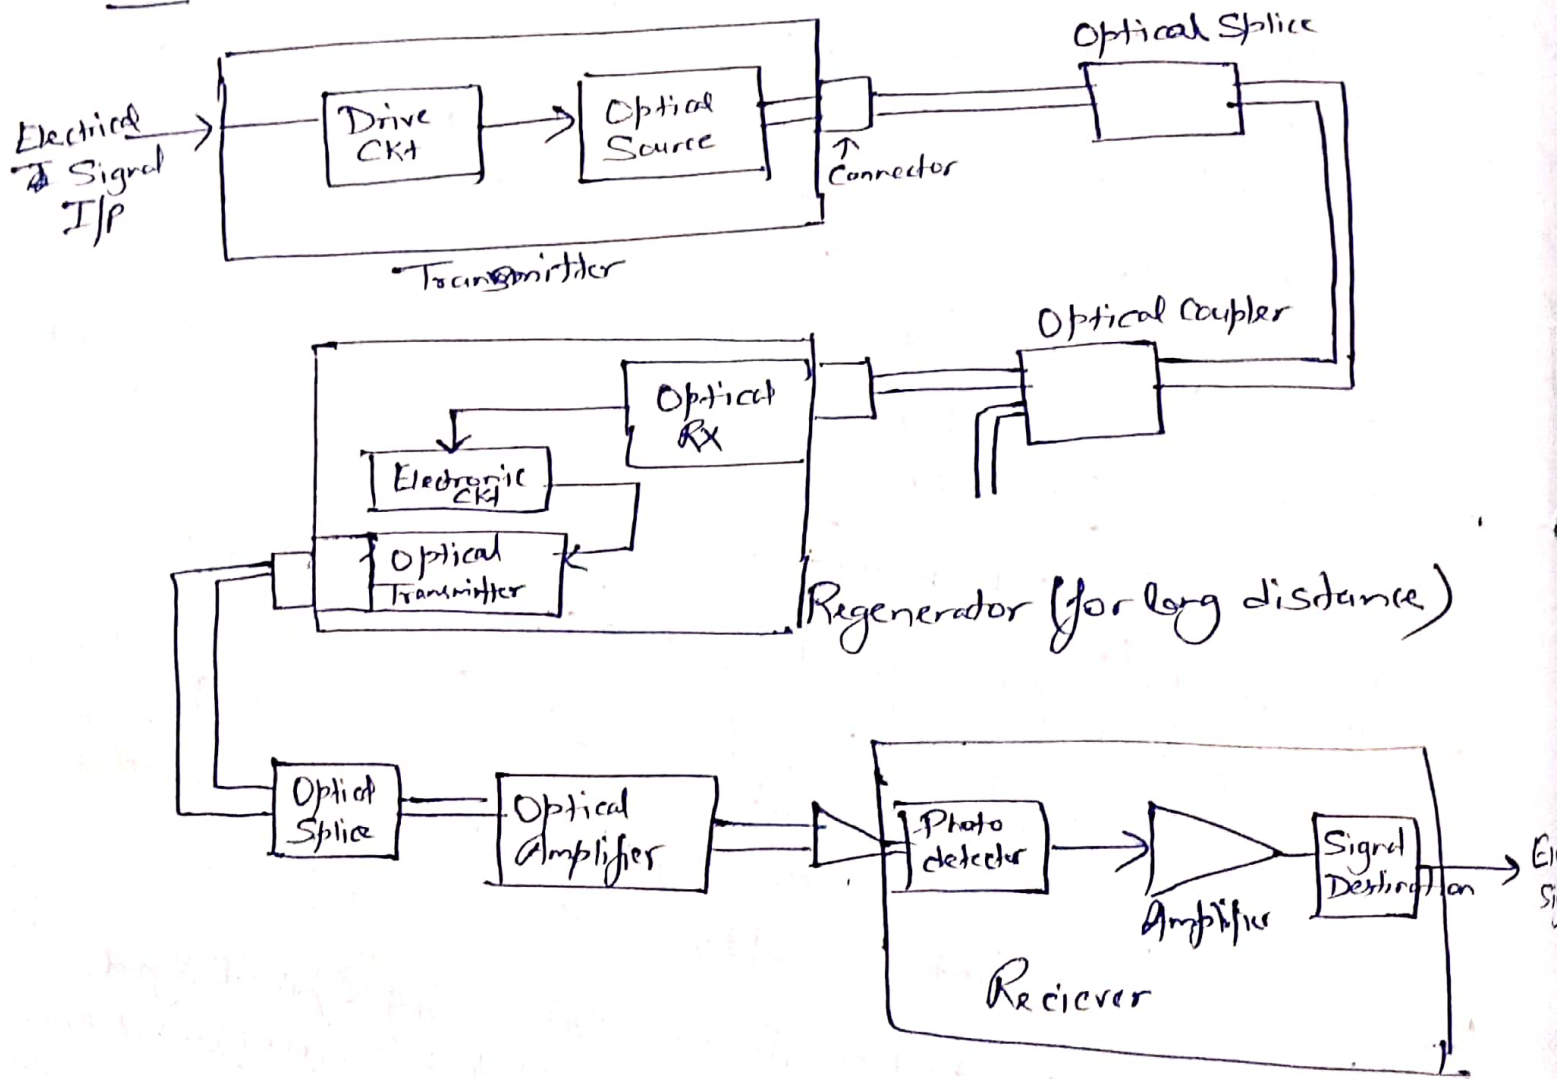 Optical Splice
Electrical
Signal
I/P
Drive
CKt
Optical
Source
Connector
Transmitter
Optical Coupler
Optical
RX
Electronic
CKt
Optical
Transmitter
Regenerator (for long distance)
Optical
Splice
Optical
Amplifier
Photo
detector
Amplifier
Signal
Destination
Reciever